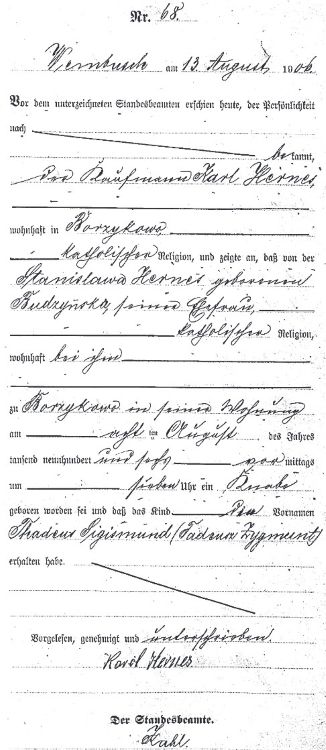 Nr. 68.
Wembusch am 13. August 1906
Vor dem unterzeichneten Standesbeamten erschien heute, der Persönlichkeit
nach
bekannt,
der Kaufmann Karl Hernes,
wohnhaft in Borzykowo
katholischer Religion, und zeigte an, daß von der
Stanislawa Hernes geborenen
Budzyńska, seiner Ehefrau,
katholischer Religion,
wohnhaft bei ihm
zu Borzykowo in seiner Wohnung
am acht ten August des Jahres
tausend neunhundert und sechs vor mittags
um sieben Uhr ein Knabe
geboren worden sei und daß das Kind den Vornamen
Thadeus Sigismund (Tadeusz Zygmunt)
erhalten habe.
Vorgelesen, genehmigt und unterschrieben.
Karol Hernes
Der Standesbeamte.